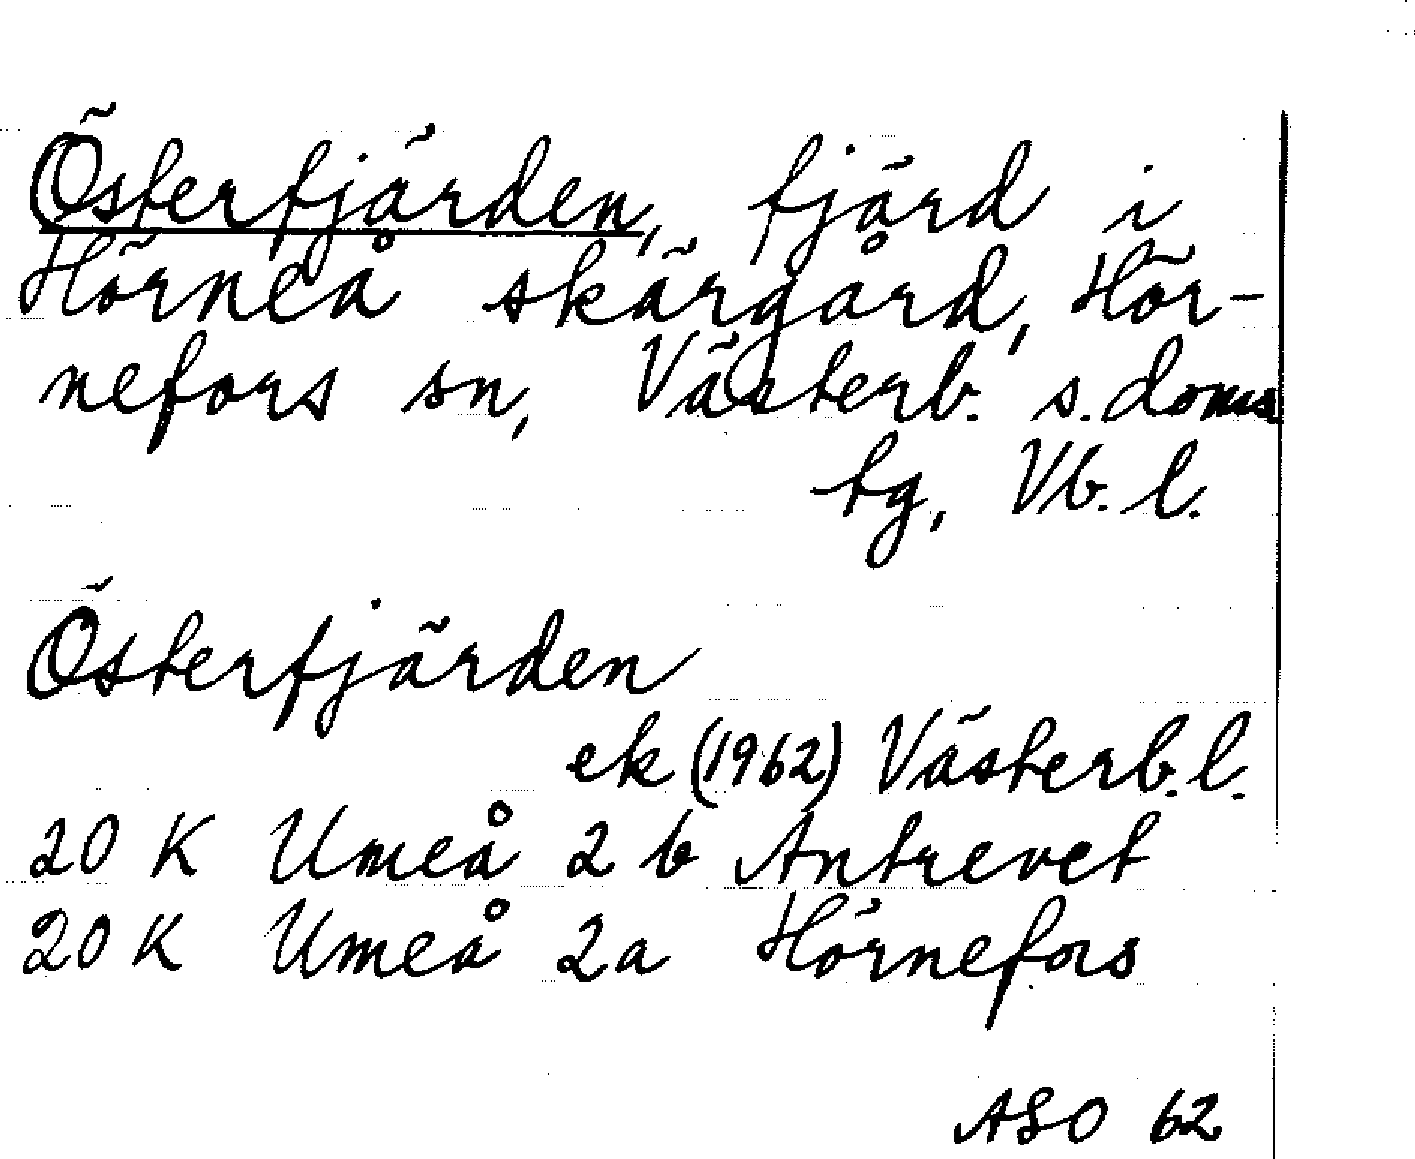 Österfjärden, fjärd i
Hörneå skärgård, Hör-
nefors sn, Västerb. s. doms
tg, Vb. l.
Österfjärden
ek (1962) Västerb. l.
20 K Umeå 2 b Antrevet
20 K Umeå 2a Hörnefors
ASO 62